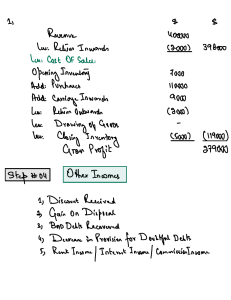 1,
$ $
Revenue 400000
Less: Return Inwards (2000) 398000
Less: Cost Of Sales:
Opening Inventory 7000
Add: Purchases 110000
Add: Carriage Inwards 9000
Less: Return Outwards (2000)
Less: Drawing of Goods -
Less: Closing Inventory (5000) (119000)
Gross Profit 279000
Step #04 Other Incomes
1, Discount Received
2, Gain On Disposal
3, Bad Debts Recovered
4, Decrease in Provision for Doubtful Debts
5, Rent Income / Interest Income / Commission Income